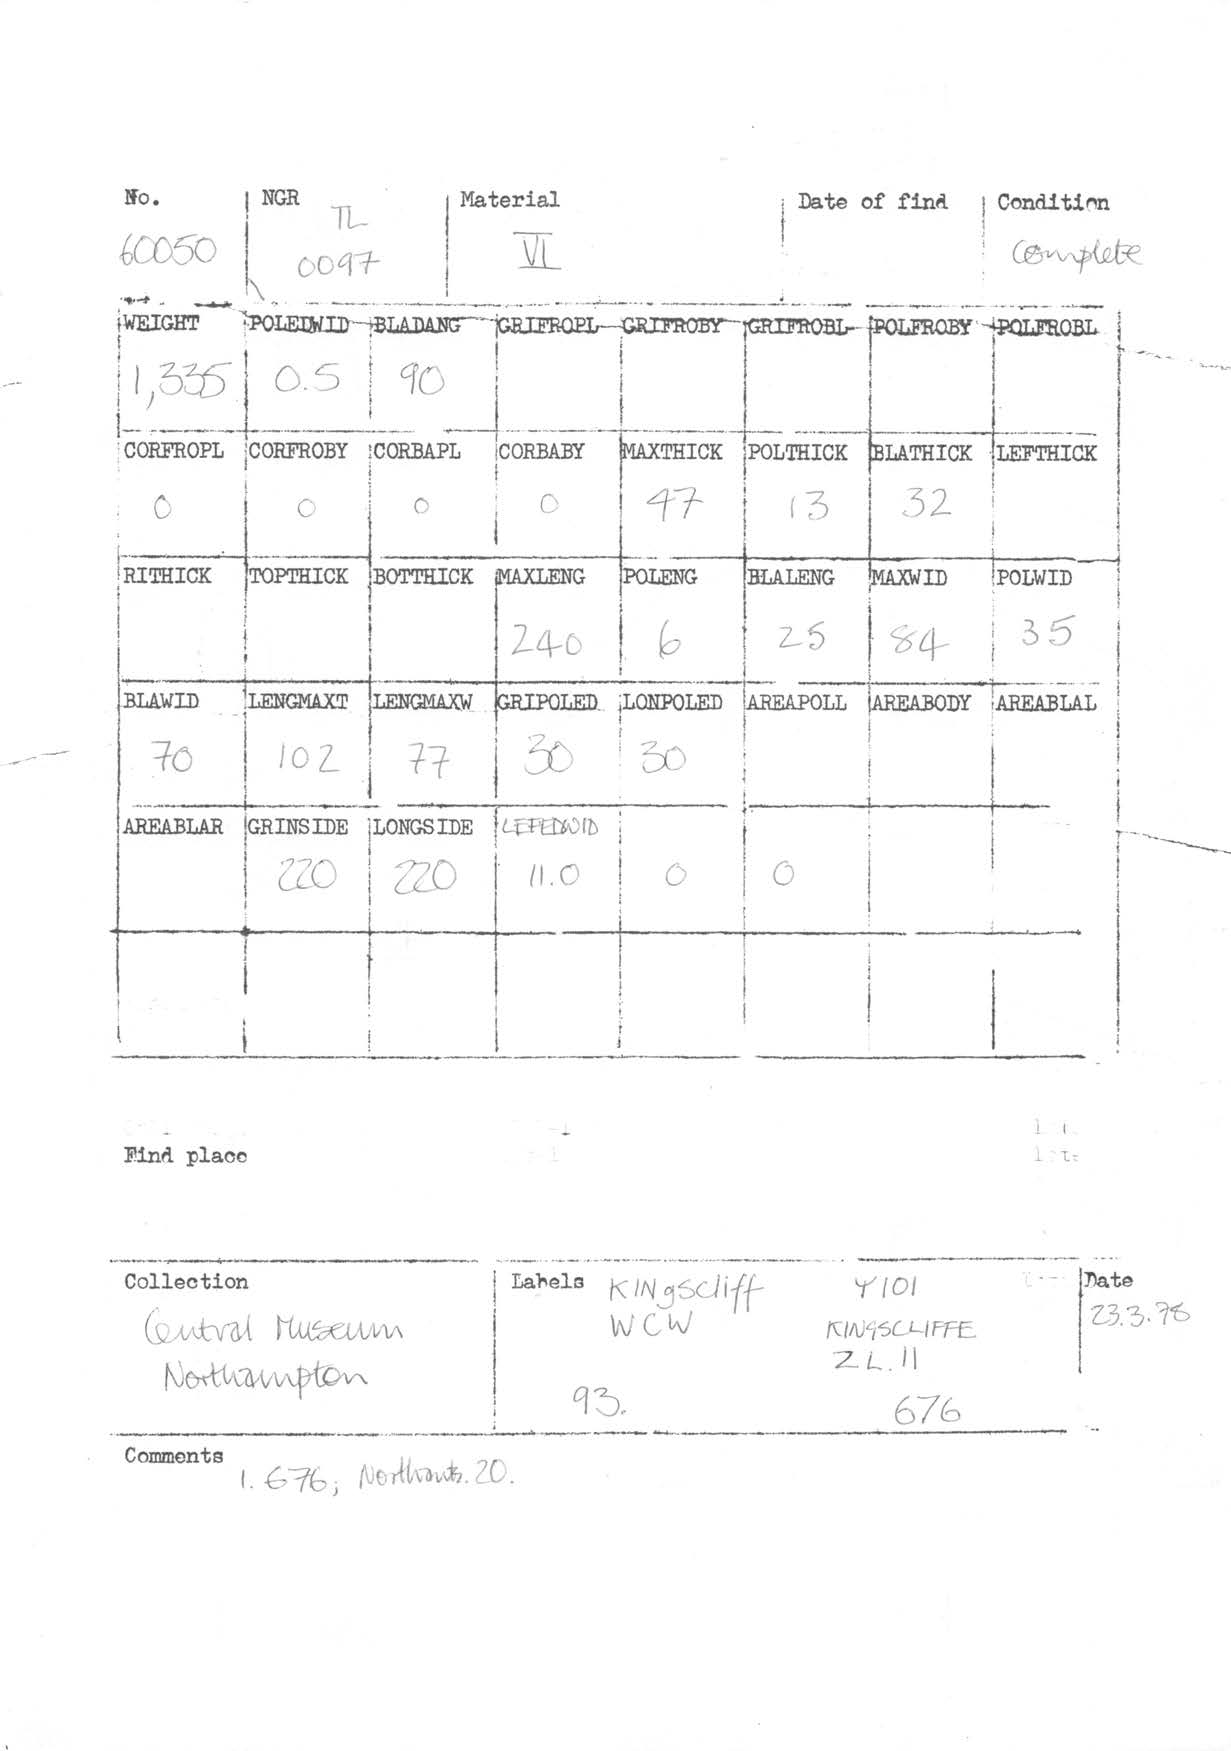 No. NGR Material Date of find Condition
TL
60050 0097 VI Complete
WEIGHT POLEDWID BLADANG GRIFROPL GRIFROBY GRIFROBL POLFROBY POLFROBL
1,335 0.5 90
CORFROPL CORFROBY CORBAPL CORBABY MAXTHICK POLTHICK BLATHICK LEFTHICK
0 0 0 0 47 13 32
RITHICK TOPTHICK BOTTHICK MAXLENG POLENG BLALENG MAXWID POLWID
240 6 25 84 35
BLAWID LENGMAXT LENGMAXW GRIPOLED LONPOLED AREAPOLL AREABODY AREABLAL
70 102 77 30 30
AREABLAR GRINSIDE LONGSIDE LEFEDWID
220 220 11.0 0 0
Find place
Collection
Central Museum
Northampton
Labels KINgscliff Y101
WCW KINGSCLIFFE
ZL.11
93. 676
Date
23.3.78
Comments
1. 676; Northants. 20.